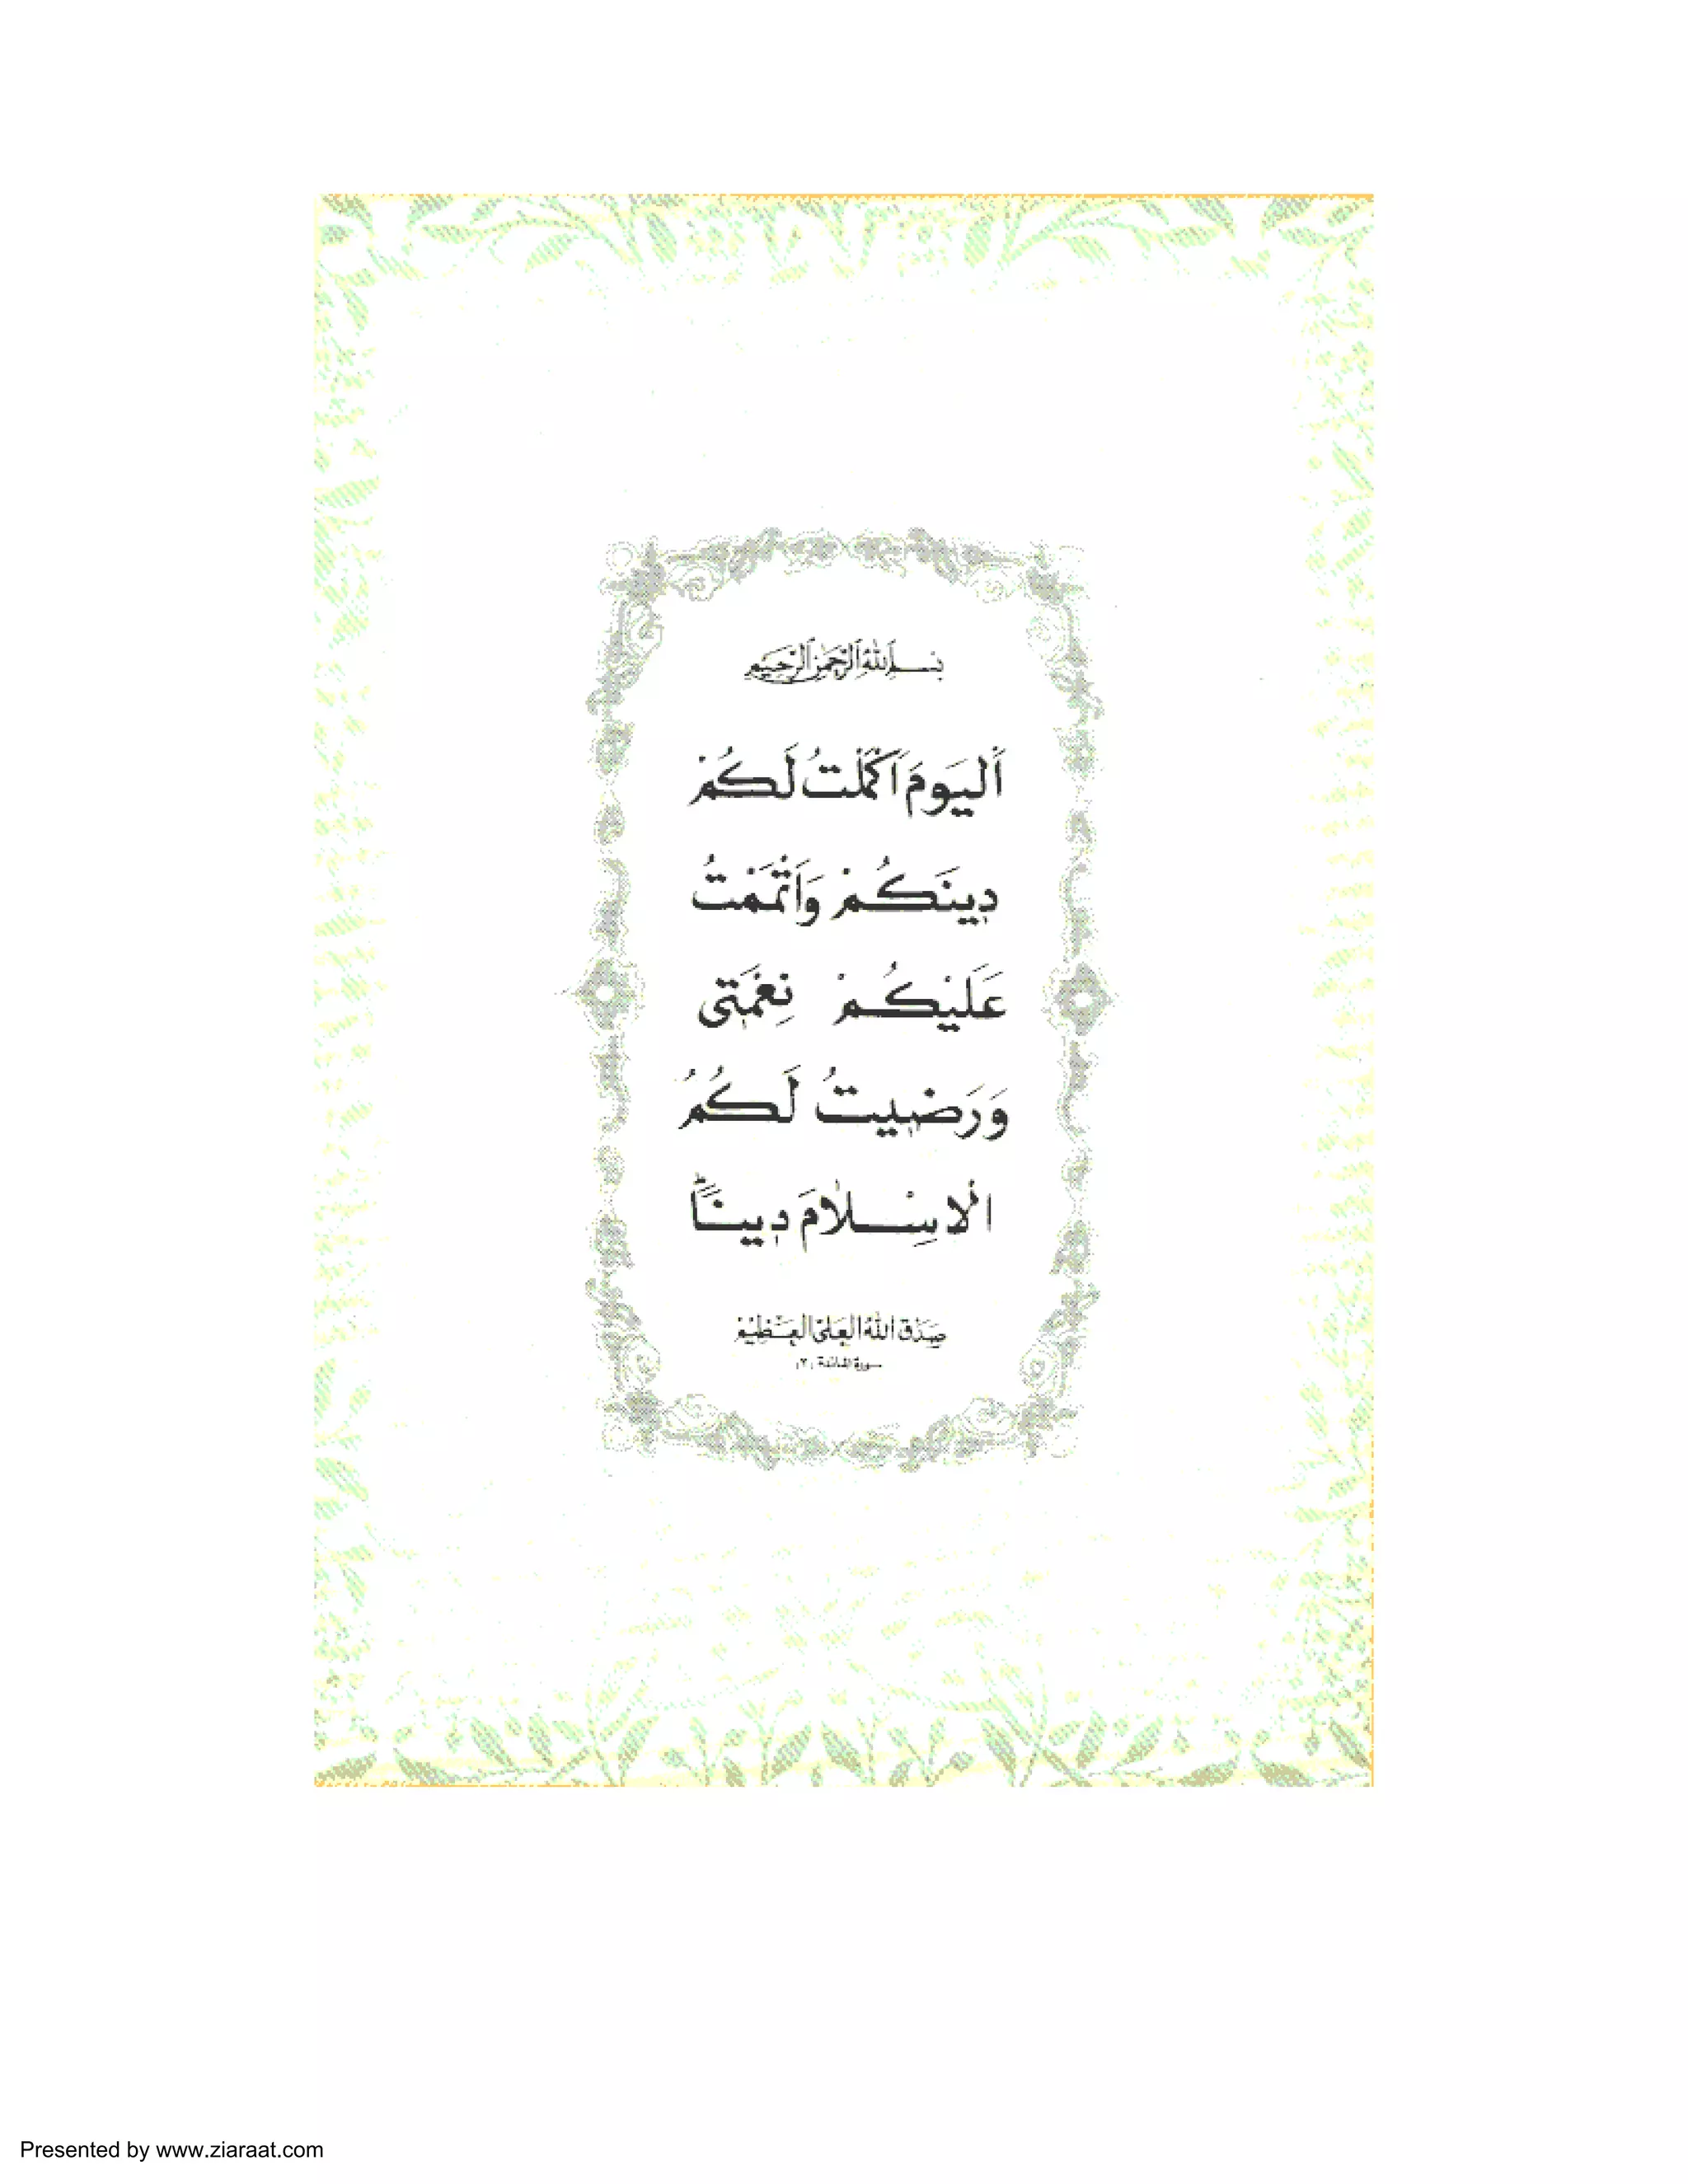 بسم الله الرحمن الرحيم
اَليَومَ اَكمَلْتُ لَكُمْ
دِينَكُمْ وَاَتْمَمْتُ
عَلَيْكُمْ نِعْمَتِى
وَرَضِيتُ لَكُمُ
الْاِسْلَامَ دِينًا ط
صَدَقَ اللهُ العَلىُّ العَظِيمُ
سورة المائدة (٣)
Presented by www.ziaraat.com